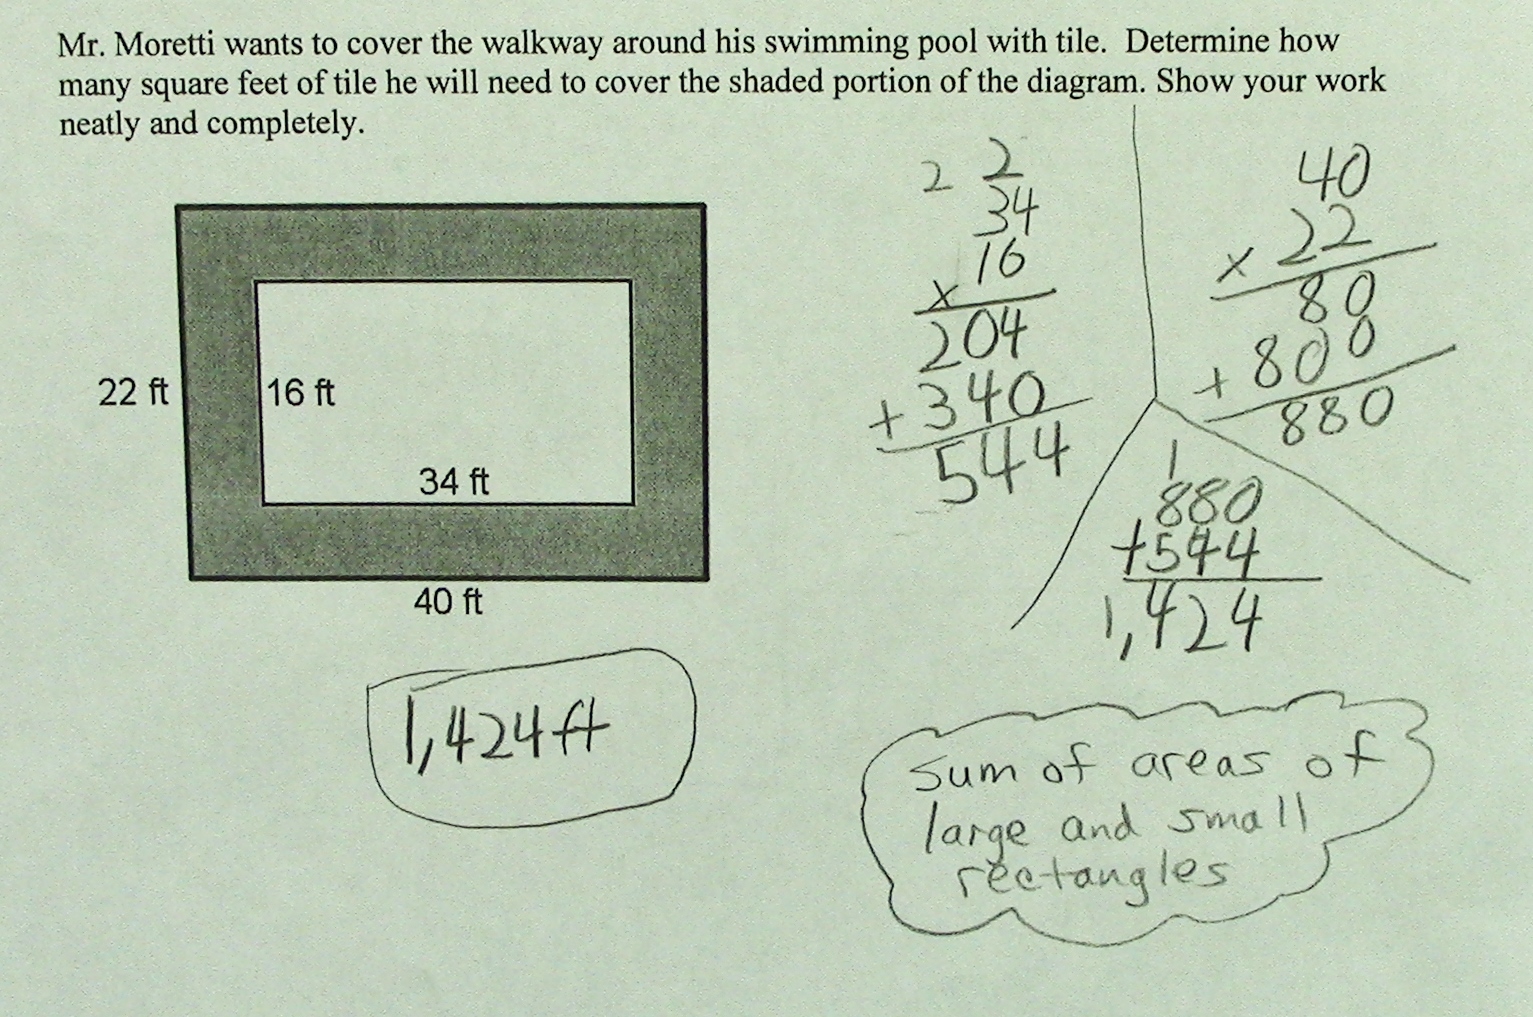 Mr. Moretti wants to cover the walkway around his swimming pool with tile. Determine how
many square feet of tile he will need to cover the shaded portion of the diagram. Show your work
neatly and completely.
22 ft
16 ft
34 ft
40 ft
1,424 ft
2 2
34
x 16
204
+ 340
544
40
x 22
80
+ 800
880
1
880
+544
1,424
Sum of areas of
large and small
rectangles